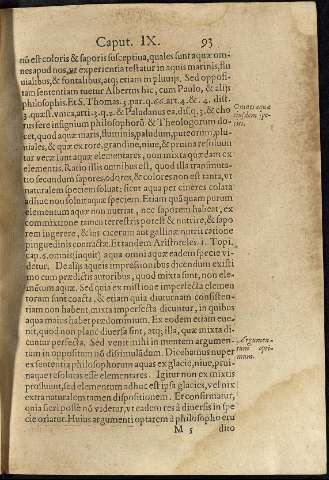 Caput. IX. 93
nõ est coloris & saporis susceptiua, quales sunt aquæ om-
nes apud nos, vt experientia testatur in aquis marinis, flu
uialibus, & fontalibus, atq; etiam in pluuijs. Sed opposi-
tam sententiam tuetur Albertus hic, cum Paulo, & alijs
philosophis. Et S. Thomas. 3. par. q. 66. art. 4. & 4. dist.
3. quæst. vnica, arti. 3. q. 2. & Paludanus ea. dis. q. 3. & cho
rus fere insignium philosophorũ & Theologorum do-
cet, quod aquæ maris, fluminis, paludum, puteorum, plu-
uiales, & quæ ex rore, grandine, niue, & pruina resoluun
tur veræ sunt aquæ elementares, non mixta quædam ex
elementis. Ratio illis omnibus est, quod illa transmuta-
tio secundum sapores, odores, & colores non est tanta, vt
naturalem speciem soluat: sicut aqua per cineres colata
adhuc non soluit aquæ speciem. Etiam quãquam purum
elementum aquæ non nutriat, nec saporem habeat, ex
commixtione tamen terrestris potest & nutrire, & sapo
rem ingerere, & ius cicerum aut gallinæ nutrit ratione
pinguedinis contractæ. Et tandem Aristoteles. 1. Topi.
cap. 5. omnis (inquit) aqua omni aquæ eadem specie vi-
detur. De alijs aqueis impressionibus dicendum existi
mo cum prædictis autoribus, quod mixta sunt, non ele-
mentum aquæ. Sed quia ex mistione imperfecta elemen
torum sunt coacta, & etiam quia diuturnam consisten-
tiam non habent, mixta imperfecta dicuntur, in quibus
aqua maius habet prædominium. Ex eodem etiam eue-
nit, quod non planè diuersa sint, atq; illa, quæ mixta di-
cuntur perfecta. Sed venit mihi in mentem argumen-
tum in oppositum nõ dissimulãdum. Dicebamus nuper
ex sententia philosophorum aquas ex glacie, niue, prui-
naque resolutas esse elementares. Igitur non ex mixtis
profluunt, sed elementum adhuc est ipsa glacies, vel nix
extra naturalem tamen dispositionem. Et confirmatur,
quia fieri posse nõ videtur, vt eadem res à diuersis in spe
cie oriatur. Huius argumenti optarem à philosopho eru
M 5 dito
Omnes aquæ
eiusdem spe-
ciei.
Argumen-
tum opti-
mum.